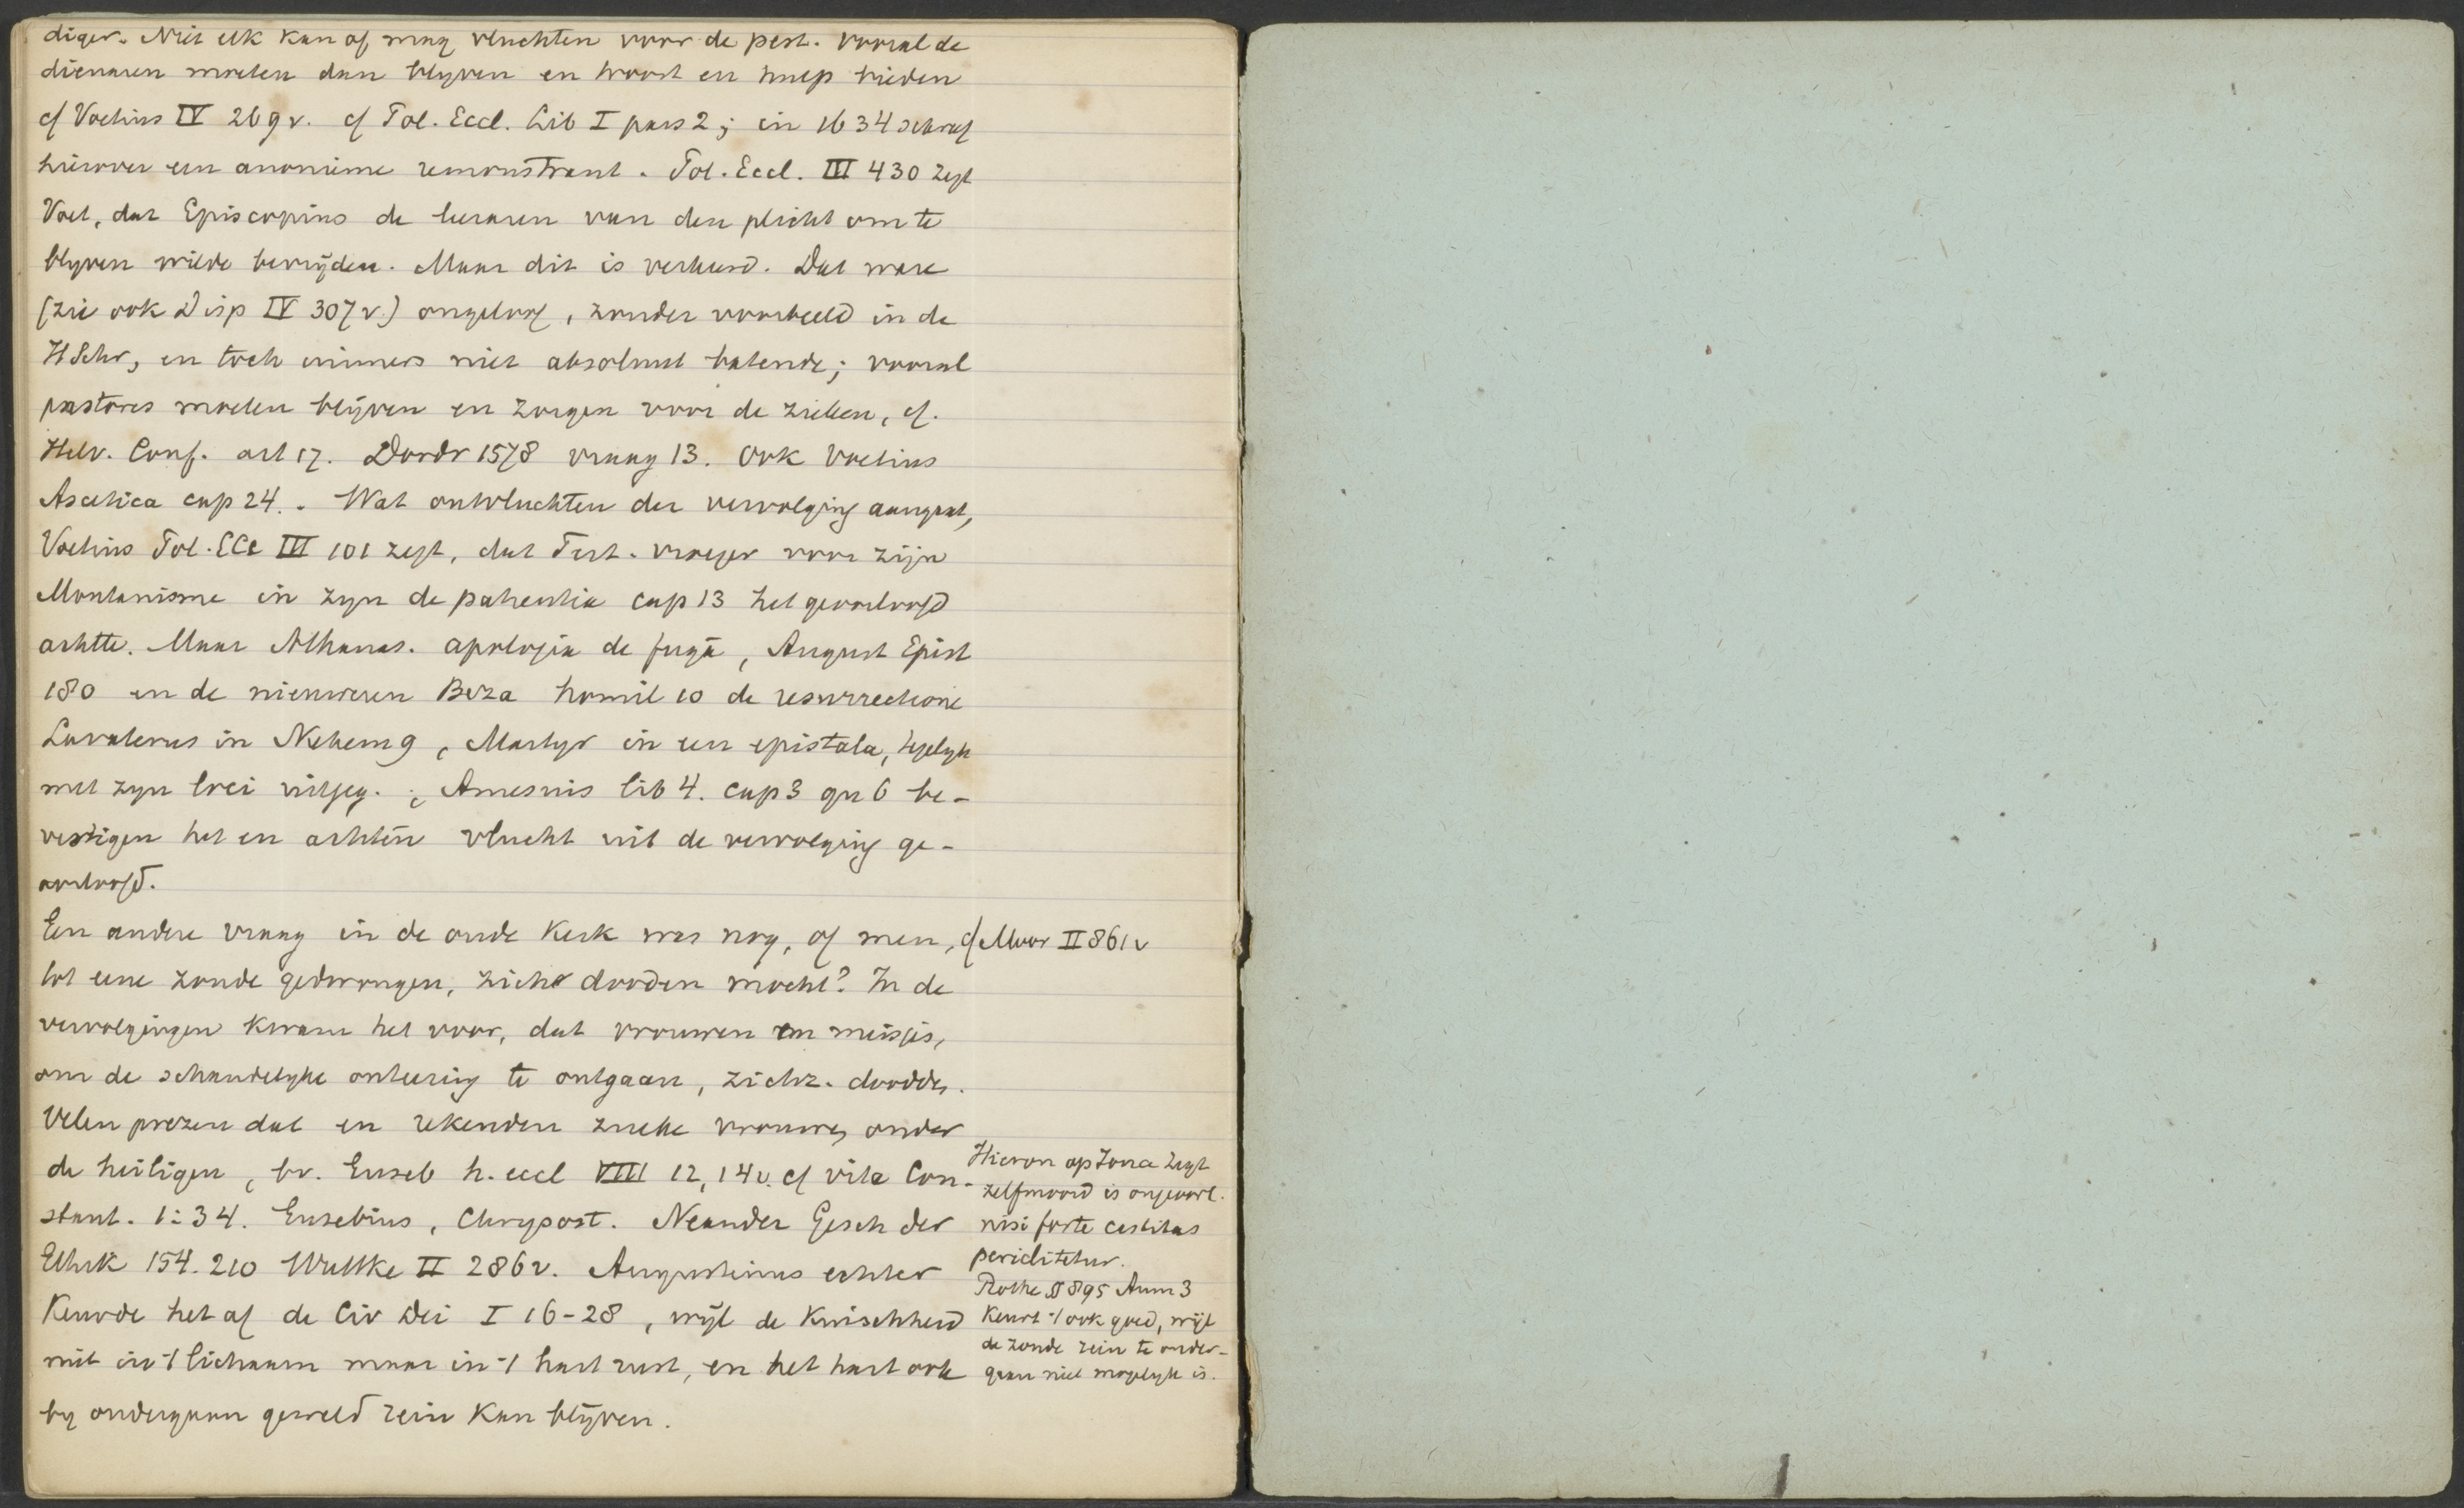 diger. Niet elk kan of mag vluchten voor de pest. Vooral de
dienaren moeten dan blyven en troost en hulp bieden
cf Voetius IV 269v. cf Pol. Eccl. Lib I pars 2; in 1634 schreef
hierover een anonieme remonstrant. Pol. Eccl. III 430 zegt
Voet, dat Episcopius de leraren van den plicht om te
blyven wilde bevrijden. Maar dit is verkeerd. Dat ware
(zie ook Disp IV 307v.) ongeloof, zonder voorbeeld in de
HSchr, en toch immers niet absoluut batende; vooral
pastores moeten blijven en zorgen voor de zieken, cf.
Helv. Conf. art 17. Dordr 1578 vraag 13. Ook Voetius
Ascetica cap 24. Wat ontvluchten der vervolging aangaat,
Voetius Pol. ECc III 101 zegt, dat Tert. vroeger voor zijn
Montanisme in zyn de patientia cap 13 het geoorloofd
achtte. Maar Athanas. apologia de fugâ, August Epist
180 en de nieuweren Beza homil 10 de resurrectione
Lavaterus in Nehem 9, Martyr in een epistola, tegelyk
met zyn loci uitgeg.; Amesius lib 4. cap 3 qu 6 be-
vestigen het en achten vlucht uit de vervolging ge-
oorloofd.
Een andere vraag in de oude Kerk was nog, of men,
cf Moor II 861v
tot eene zonde gedwongen, zich dooden mocht? In de
vervolgingen kwam het voor, dat vrouwen en meisjes,
om de schandelyke onteering te ontgaan, zichz. doodden.
Velen prezen dat en rekenden zulke vrouwen onder
de heiligen, bv. Euseb h. eccl VIII 12, 14v. cf vita Con-
stant. 1:34. Eusebius, Chrysost. Neander Gesch der
Ethik 154. 210 Wuttke II 286v. Augustinus echter
Keurde het af de Civ Dei I 16-28, wijl de Kuischheid
niet in 't lichaam maar in 't hart rust, en het hart ook
by ondergaan geweld rein Kan blijven.
Hieron op Jona zegt
zelfmoord is ongeoorl.
nisi forte castitas
periclitetur.
Rothe § 895 Anm 3
Keurt 't ook goed, wijl
de zonde rein te onder-
gaan niet mogelyk is.